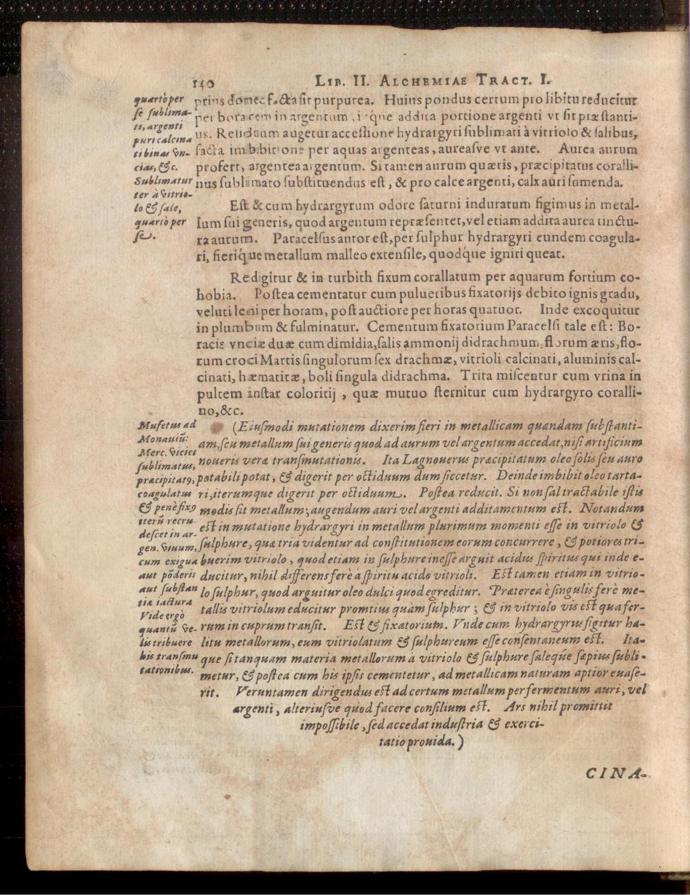 140 LIB. II. ALCHEMIAE TRACT. I.
quartò per
se sublima-
ti, argenti
puri calcina
ti binas vn-
cias, &c.
Sublimatur
ter à vitrio-
lo & sale,
quartò per
se.
prius donec facta sit purpurea. Huius pondus certum pro libitu reducitur
per boracem in argentum, itque addita portione argenti vt sit præstanti-
us. Residuum augetur accessione hydrargyri sublimati à vitriolo & salibus,
facta imbibitione per aquas argenteas, aureasve vt ante. Aurea aurum
profert, argentea argentum. Si tamen aurum quæris, præcipitatus coralli-
nus sublimato substituendus est, & pro calce argenti, calx auri sumenda.
Est & cum hydrargyrum odore saturni induratum figimus in metal-
lum sui generis, quod argentum repræsentet, vel etiam addita aurea tinctu-
ra aurum. Paracelsus autor est, per sulphur hydrargyri eundem coagula-
ri, fierique metallum malleo extensile, quodque igniri queat.
Redigitur & in turbith fixum corallatum per aquarum fortium co-
hobia. Postea cementatur cum pulueribus fixatorijs debito ignis gradu,
veluti leni per horam, post auctiore per horas quatuor. Inde excoquitur
in plumbum & fulminatur. Cementum fixatorium Paracelsi tale est: Bo-
racis vnciæ duæ cum dimidia, salis ammonij didrachmum, florum æris, flo-
rum croci Martis singulorum sex drachmæ, vitrioli calcinati, aluminis cal-
cinati, hæmatitæ, boli singula didrachma. Trita miscentur cum vrina in
pultem instar coloritij, quæ mutuo sternitur cum hydrargyro coralli-
no, &c.
Mufetus ad
Monauiũ:
Merc. vicies
sublimatus,
præcipitatꝰ,
coagulatus
& penè fixꝰ
iterũ recru
descet in ar-
gen. viuum,
cum exigua
aut põderis
aut substan
tiæ iactura
Vide ergò
quantũ ve-
lis tribuere
his transmu
tationibus.
(Eiusmodi mutationem dixerim fieri in metallicam quandam substanti-
am, seu metallum sui generis quod ad aurum vel argentum accedat, nisi artificium
noueris veræ transmutationis. Ita Lagnouerus præcipitatum oleo solis seu auro
potabili potat, & digerit per octiduum dum siccetur. Deinde imbibit oleo tarta-
ri, iterumque digerit per octiduum. Postea reducit. Si non sal tractabile istis
modis sit metallum; augendum auri vel argenti additamentum est. Notandum
est in mutatione hydrargyri in metallum plurimum momenti esse in vitriolo &
sulphure, qua tria videntur ad constitutionem eorum concurrere, & potiores tri-
buerim vitriolo, quod etiam in sulphure inesse arguit acidus spiritus qui inde e-
ducitur, nihil differens ferè a spiritu acido vitrioli. Est tamen etiam in vitrio-
lo sulphur, quod arguitur oleo dulci quod egreditur. Præterea è singulis ferè me-
tallis vitriolum educitur promtius quàm sulphur; & in vitriolo vis est qua fer-
rum in cuprum transit. Est & fixatorium. Vnde cum hydrargyrus figitur ha-
litu metallorum, eum vitriolatum & sulphureum esse consentaneum est. Ita-
que si tanquam materia metallorum à vitriolo & sulphure saleque sæpius subli-
metur, & postea cum his ipsis cementetur, ad metallicam naturam aptior euase-
rit. Veruntamen dirigendus est ad certum metallum per fermentum auri, vel
argenti, alteriusve quod facere consilium est. Ars nihil promittit
impossibile, sed accedat industria & exerci-
tatio prouida.)
CINA-